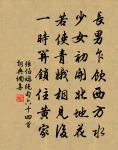 長男乍飲西方水
少女初開北地花
若使青娥相見後
一時算鎖住黃家
張伯端絕句六十四首
胡央調集